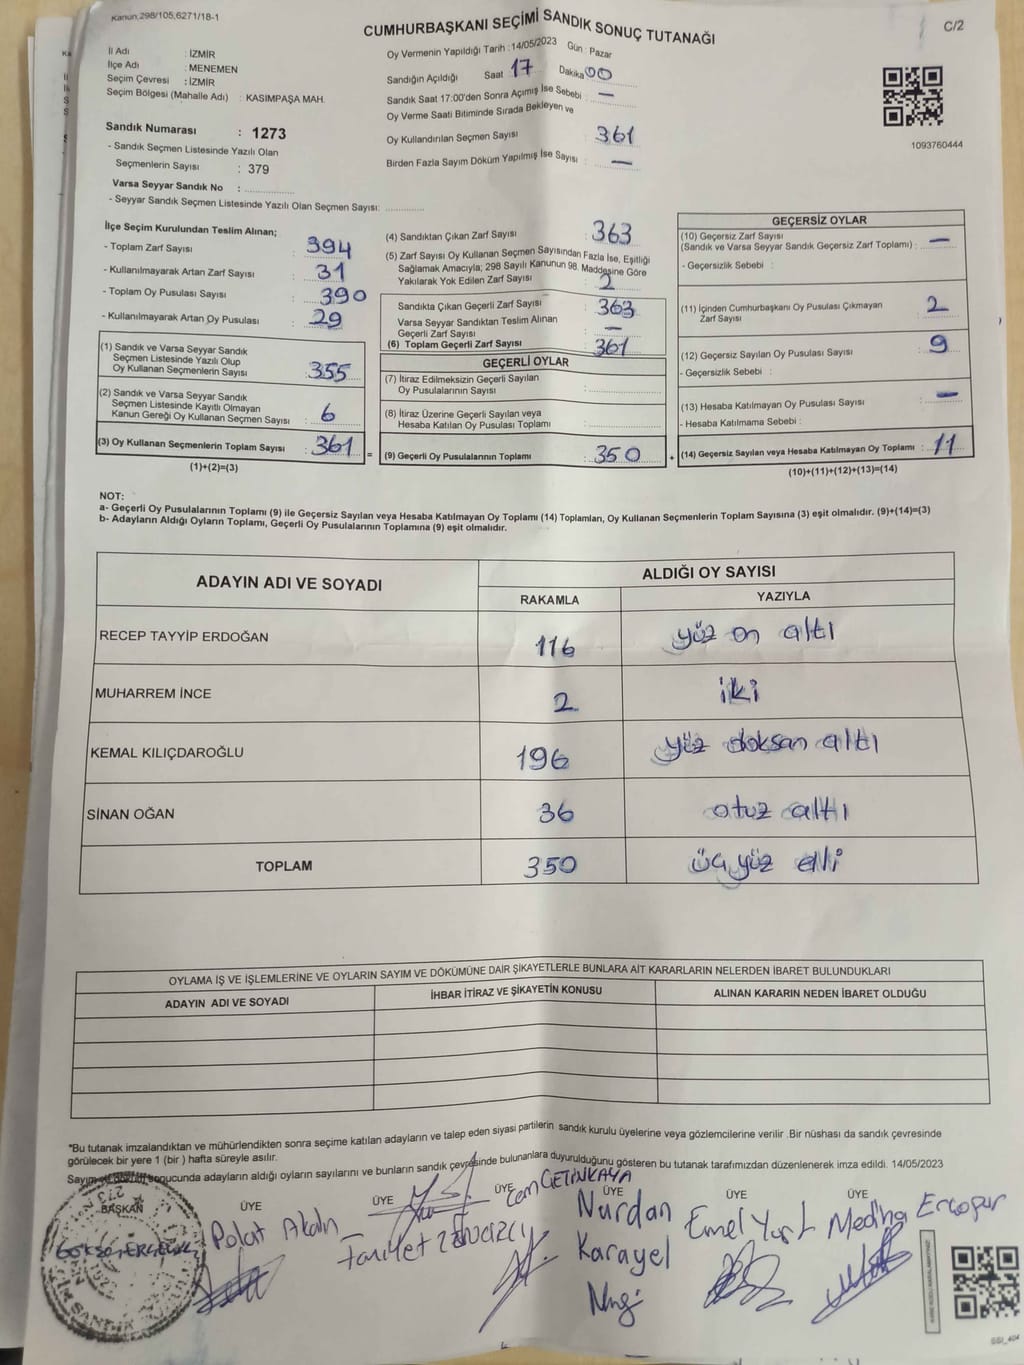 Kanun,298/105,6271/18-1
CUMHURBAŞKANI SEÇİMİ SANDIK SONUÇ TUTANAĞI
C/2
İl Adı : İZMİR
İlçe Adı : MENEMEN
Seçim Çevresi : İZMİR
Seçim Bölgesi (Mahalle Adı) : KASIMPAŞA MAH.
Sandık Numarası : 1273
- Sandık Seçmen Listesinde Yazılı Olan
Seçmenlerin Sayısı : 379
Varsa Seyyar Sandık No : ..............
- Seyyar Sandık Seçmen Listesinde Yazılı Olan Seçmen Sayısı: ..............
Oy Vermenin Yapıldığı Tarih : 14/05/2023 Gün : Pazar
Sandığın Açıldığı Saat : 17 Dakika : 00
Sandık Saat 17:00'den Sonra Açımış İse Sebebi : —
Oy Verme Saati Bitiminde Sırada Bekleyen ve
Oy Kullandırılan Seçmen Sayısı : 361
Birden Fazla Sayım Döküm Yapılmış İse Sayısı : —
1093760444
İlçe Seçim Kurulundan Teslim Alınan;
- Toplam Zarf Sayısı : 394
- Kullanılmayarak Artan Zarf Sayısı : 31
- Toplam Oy Pusulası Sayısı : 390
- Kullanılmayarak Artan Oy Pusulası : 29
(1) Sandık ve Varsa Seyyar Sandık
Seçmen Listesinde Yazılı Olup
Oy Kullanan Seçmenlerin Sayısı : 355
(2) Sandık ve Varsa Seyyar Sandık
Seçmen Listesinde Kayıtlı Olmayan
Kanun Gereği Oy Kullanan Seçmen Sayısı : 6
(3) Oy Kullanan Seçmenlerin Toplam Sayısı : 361
(1)+(2)=(3)
=
(4) Sandıktan Çıkan Zarf Sayısı : 363
(5) Zarf Sayısı Oy Kullanan Seçmen Sayısından Fazla İse, Eşitliği
Sağlamak Amacıyla; 298 Sayılı Kanunun 98. Maddesine Göre
Yakılarak Yok Edilen Zarf Sayısı : 2
Sandıkta Çıkan Geçerli Zarf Sayısı : 363
Varsa Seyyar Sandıktan Teslim Alınan
Geçerli Zarf Sayısı : —
(6) Toplam Geçerli Zarf Sayısı : 361
GEÇERLİ OYLAR
(7) İtiraz Edilmeksizin Geçerli Sayılan
Oy Pusulalarının Sayısı : ..............
(8) İtiraz Üzerine Geçerli Sayılan veya
Hesaba Katılan Oy Pusulası Toplamı : ..............
(9) Geçerli Oy Pusulalarının Toplamı : 350
+
GEÇERSİZ OYLAR
(10) Geçersiz Zarf Sayısı
(Sandık ve Varsa Seyyar Sandık Geçersiz Zarf Toplamı) : —
- Geçersizlik Sebebi :
(11) İçinden Cumhurbaşkanı Oy Pusulası Çıkmayan
Zarf Sayısı : 2
(12) Geçersiz Sayılan Oy Pusulası Sayısı : 9
- Geçersizlik Sebebi :
(13) Hesaba Katılmayan Oy Pusulası Sayısı : —
- Hesaba Katılmama Sebebi :
(14) Geçersiz Sayılan veya Hesaba Katılmayan Oy Toplamı : 11
(10)+(11)+(12)+(13)=(14)
NOT:
a- Geçerli Oy Pusulalarının Toplamı (9) ile Geçersiz Sayılan veya Hesaba Katılmayan Oy Toplamı (14) Toplamları, Oy Kullanan Seçmenlerin Toplam Sayısına (3) eşit olmalıdır. (9)+(14)=(3)
b- Adayların Aldığı Oyların Toplamı, Geçerli Oy Pusulalarının Toplamına (9) eşit olmalıdır.
ADAYIN ADI VE SOYADI ALDIĞI OY SAYISI
RAKAMLA YAZIYLA
RECEP TAYYİP ERDOĞAN 116 yüz on altı
MUHARREM İNCE 2 iki
KEMAL KILIÇDAROĞLU 196 yüz doksan altı
SİNAN OĞAN 36 otuz altı
TOPLAM 350 üç yüz elli
OYLAMA İŞ VE İŞLEMLERİNE VE OYLARIN SAYIM VE DÖKÜMÜNE DAİR ŞİKAYETLERLE BUNLARA AİT KARARLARIN NELERDEN İBARET BULUNDUKLARI
ADAYIN ADI VE SOYADI İHBAR İTİRAZ VE ŞİKAYETİN KONUSU ALINAN KARARIN NEDEN İBARET OLDUĞU
*Bu tutanak imzalandıktan ve mühürlendikten sonra seçime katılan adayların ve talep eden siyasi partilerin sandık kurulu üyelerine veya gözlemcilerine verilir .Bir nüshası da sandık çevresinde
görülecek bir yere 1 (bir ) hafta süreyle asılır.
Sayım ve döküm sonucunda adayların aldığı oyların sayılarını ve bunların sandık çevresinde bulunanlara duyurulduğunu gösteren bu tutanak tarafımızdan düzenlenerek imza edildi. 14/05/2023
BAŞKAN ÜYE ÜYE ÜYE ÜYE ÜYE ÜYE
Polat Akalın
Cem ÇETİNKAYA
Nurdan
Karayel
Emel Yurt
Mediha
GSI_404